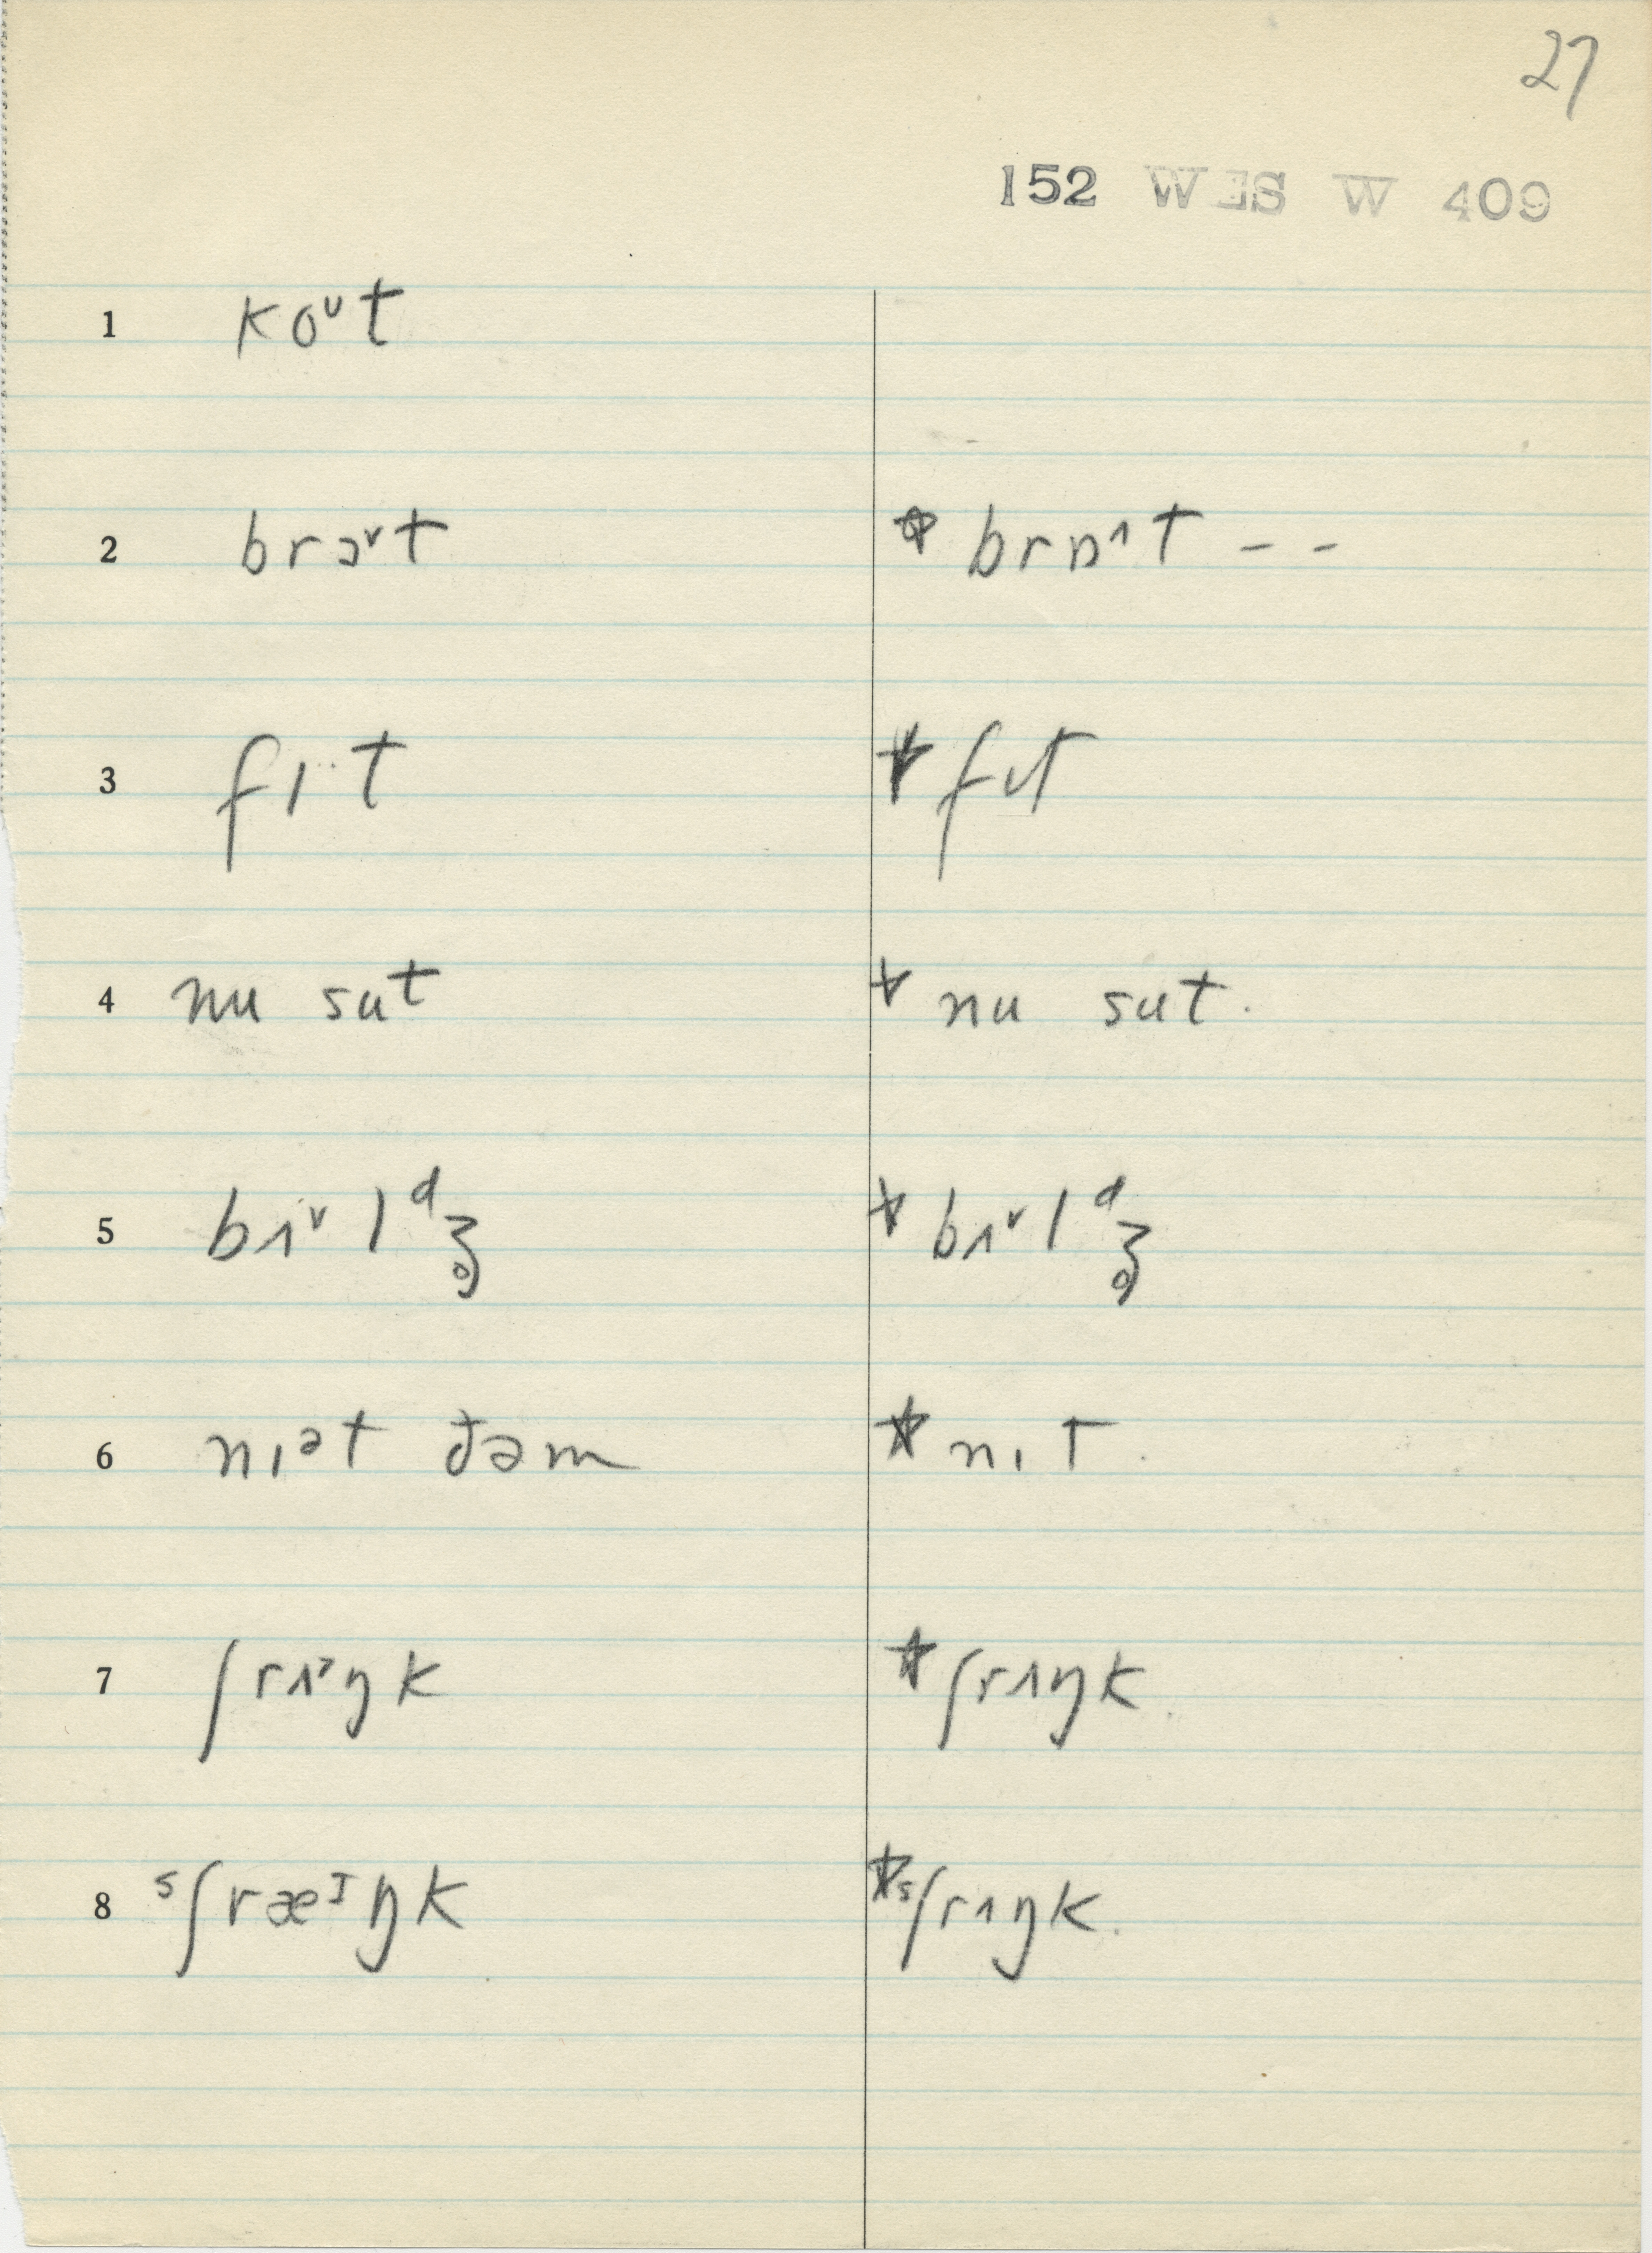 27
152 WES W 409
1 koᶷt
2 brɔ˅t ☆ brɒ˄t – –
3 fɪ··t ☆ fʊt
4 nu sut ☆ nu sut.
5 bɪ˅l ᵈʒ̥ ☆ bɪ˅l ᵈʒ̥
6 nɪᵊt ðəm ☆ nɪt.
7 ʃrɪ˃ŋk ☆ ʃrɪŋk.
8 ˢʃræᴵŋk ☆ ˢʃrɪŋk.